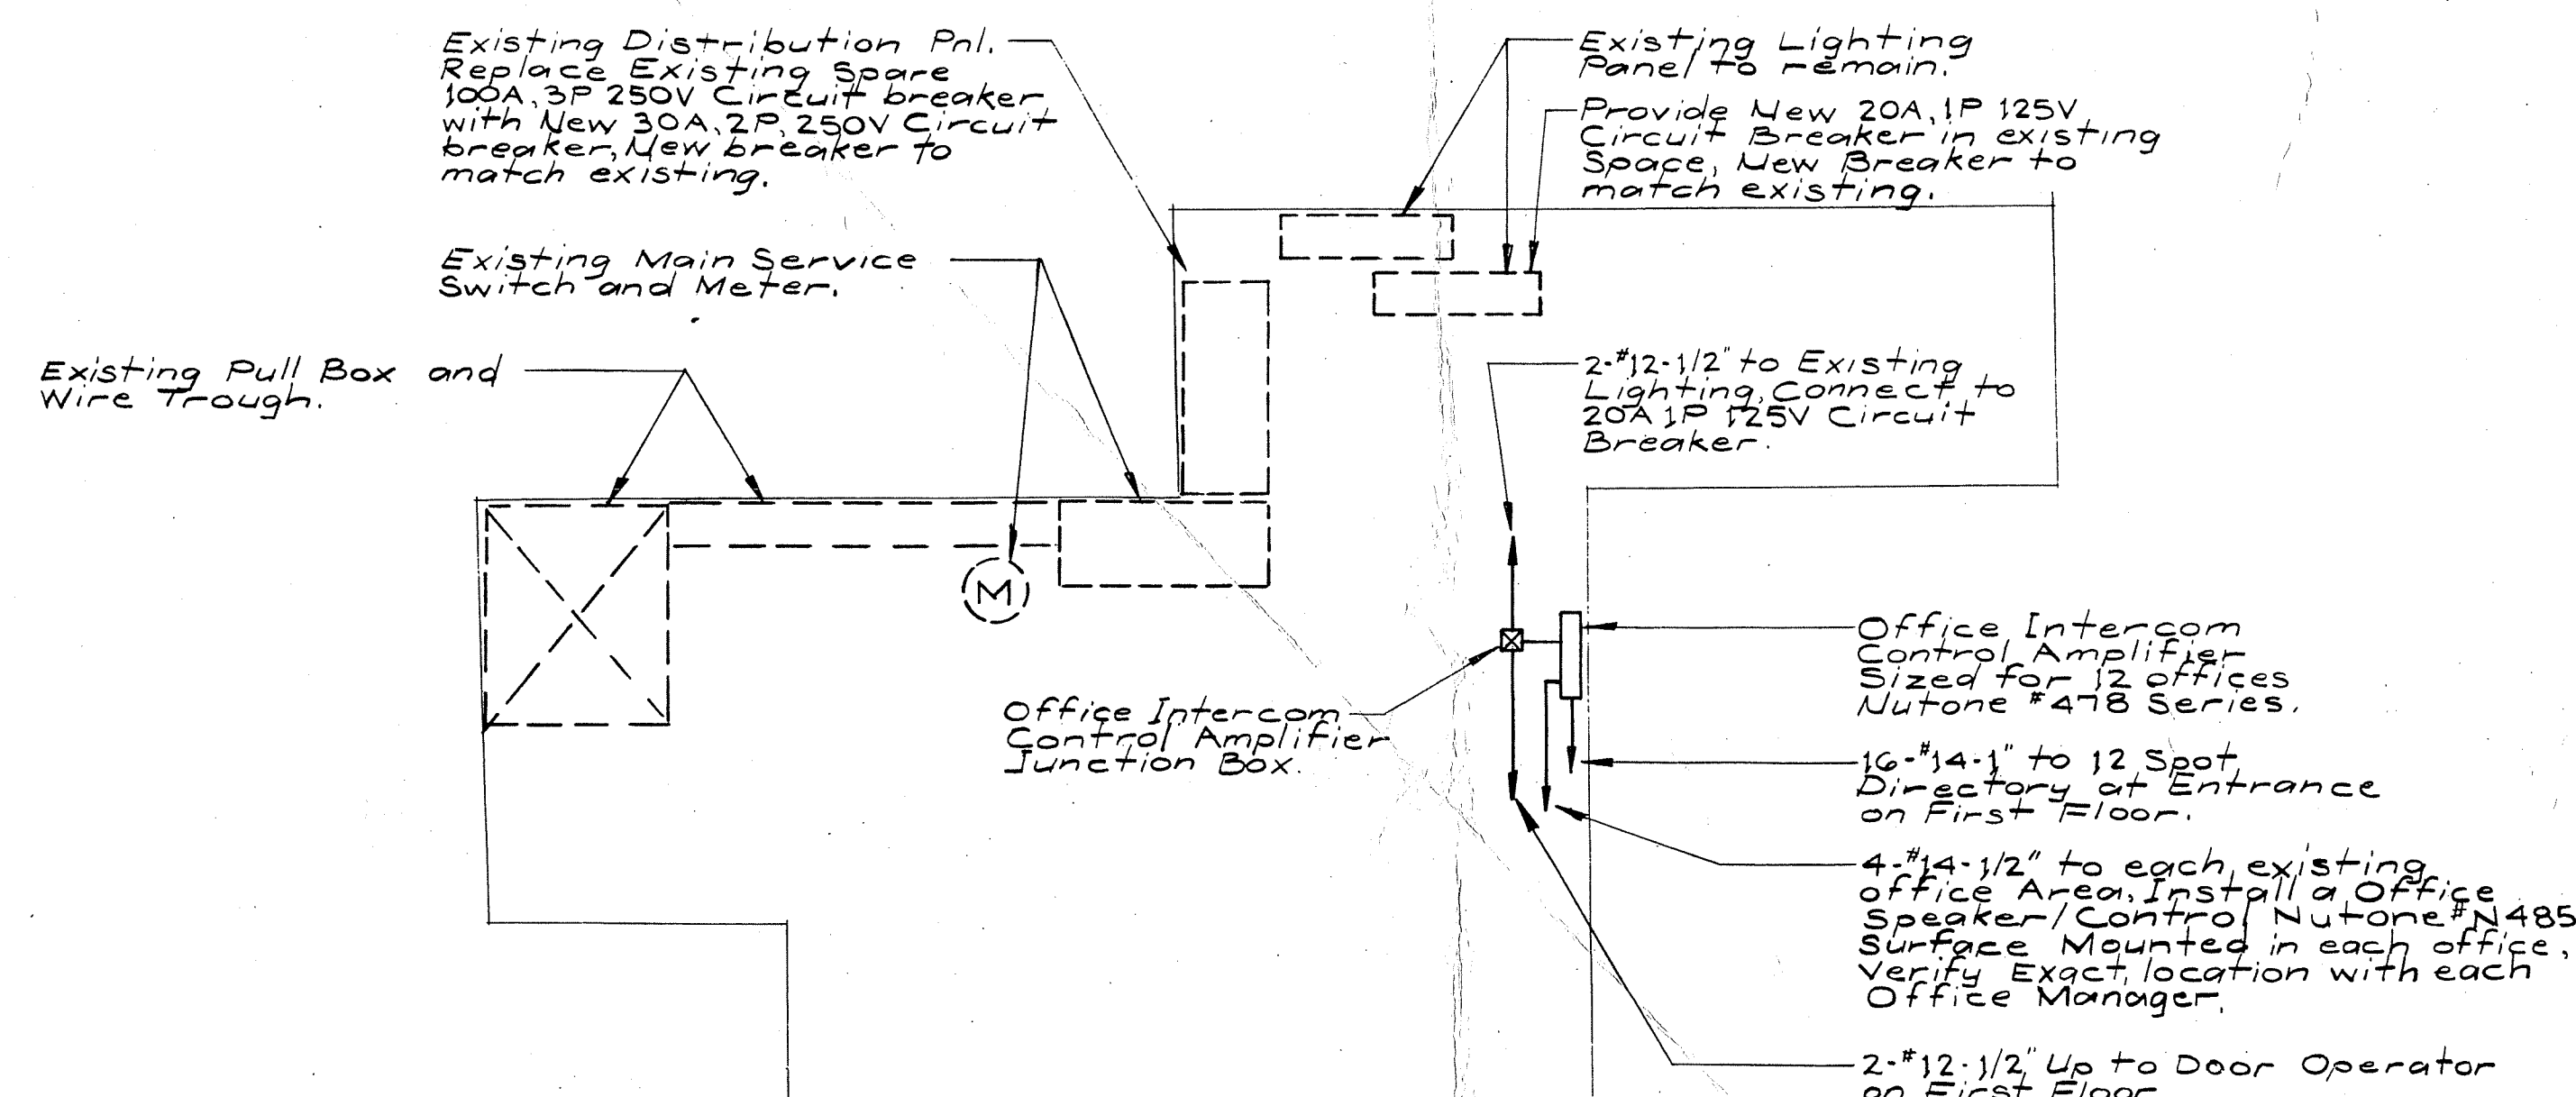 Existing Distribution Pnl.
Replace Existing Spare
100A, 3P 250V Circuit breaker
with New 30A, 2P, 250V Circuit
breaker, New breaker to
match existing.
Existing Lighting
Panel to remain.
Provide New 20A, 1P 125V
Circuit Breaker in existing
Space, New Breaker to
match existing.
Existing Main Service
Switch and Meter.
Existing Pull Box and
Wire Trough.
2-#12-1/2" to Existing
Lighting, Connect to
20A 1P 125V Circuit
Breaker.
M
Office Intercom
Control Amplifier
Junction Box.
Office Intercom
Control Amplifier
Sized for 12 offices
Nutone #478 Series.
16-#14-1" to 12 Spot
Directory at Entrance
on First Floor.
4-#14-1/2" to each existing
office Area, Install a Office
Speaker/Control Nutone #N485
Surface Mounted in each office,
Verify Exact location with each
Office Manager.
2-#12-1/2" Up to Door Operator
on First Floor